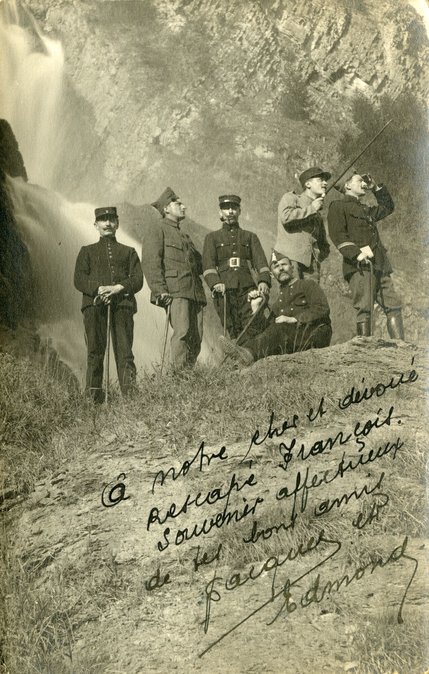 A notre cher et dévoué
Rescapé François.
Souvenir affectueux
de ses bons amis
Jacques et
Edmond